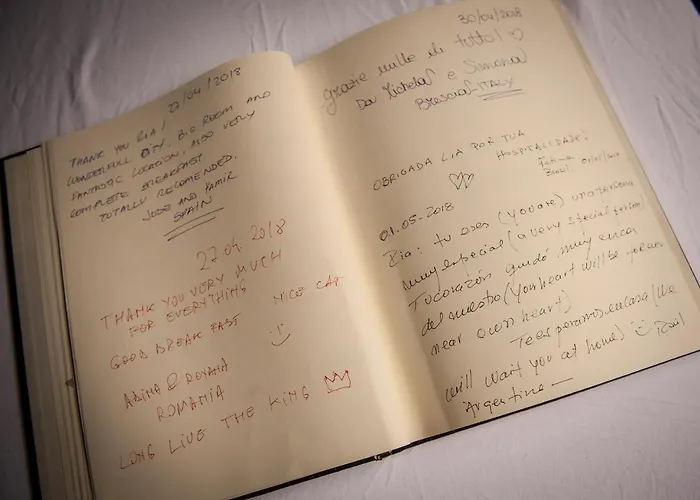 27/04/2018
THANK YOU RIA!
WONDERFULL CITY. BIG ROOM AND
FANTASTIC LOCATION, ALSO VERY
COMPLETE BREAKFAST
TOTALLY RECOMENDED.
JOSE AND YAMIR
SPAIN
27.04.2018
THANK YOU VERY MUCH
FOR EVERYTHING
GOOD BREAK FAST NICE CAT
ROMANIA
LONG LIVE THE KING
30/04/2018
grazie mille di tutto! ♡
Da e Simona
Brescia - ITALY
OBRIGADA LIA POR TUA
HOSPITALIDADE!
Brasil
01-05-2018
Ria: tu eres (you are) una persona
muy especial (a very special person)
Tu corazón quedó muy cerca
del nuestro (Your heart will be
near own heart)
Te esperamos en casa (We
will want you at home) Raúl
Argentina